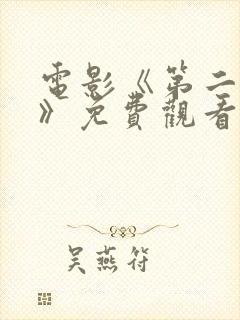 電影《第二
》免費觀看
吳燕符